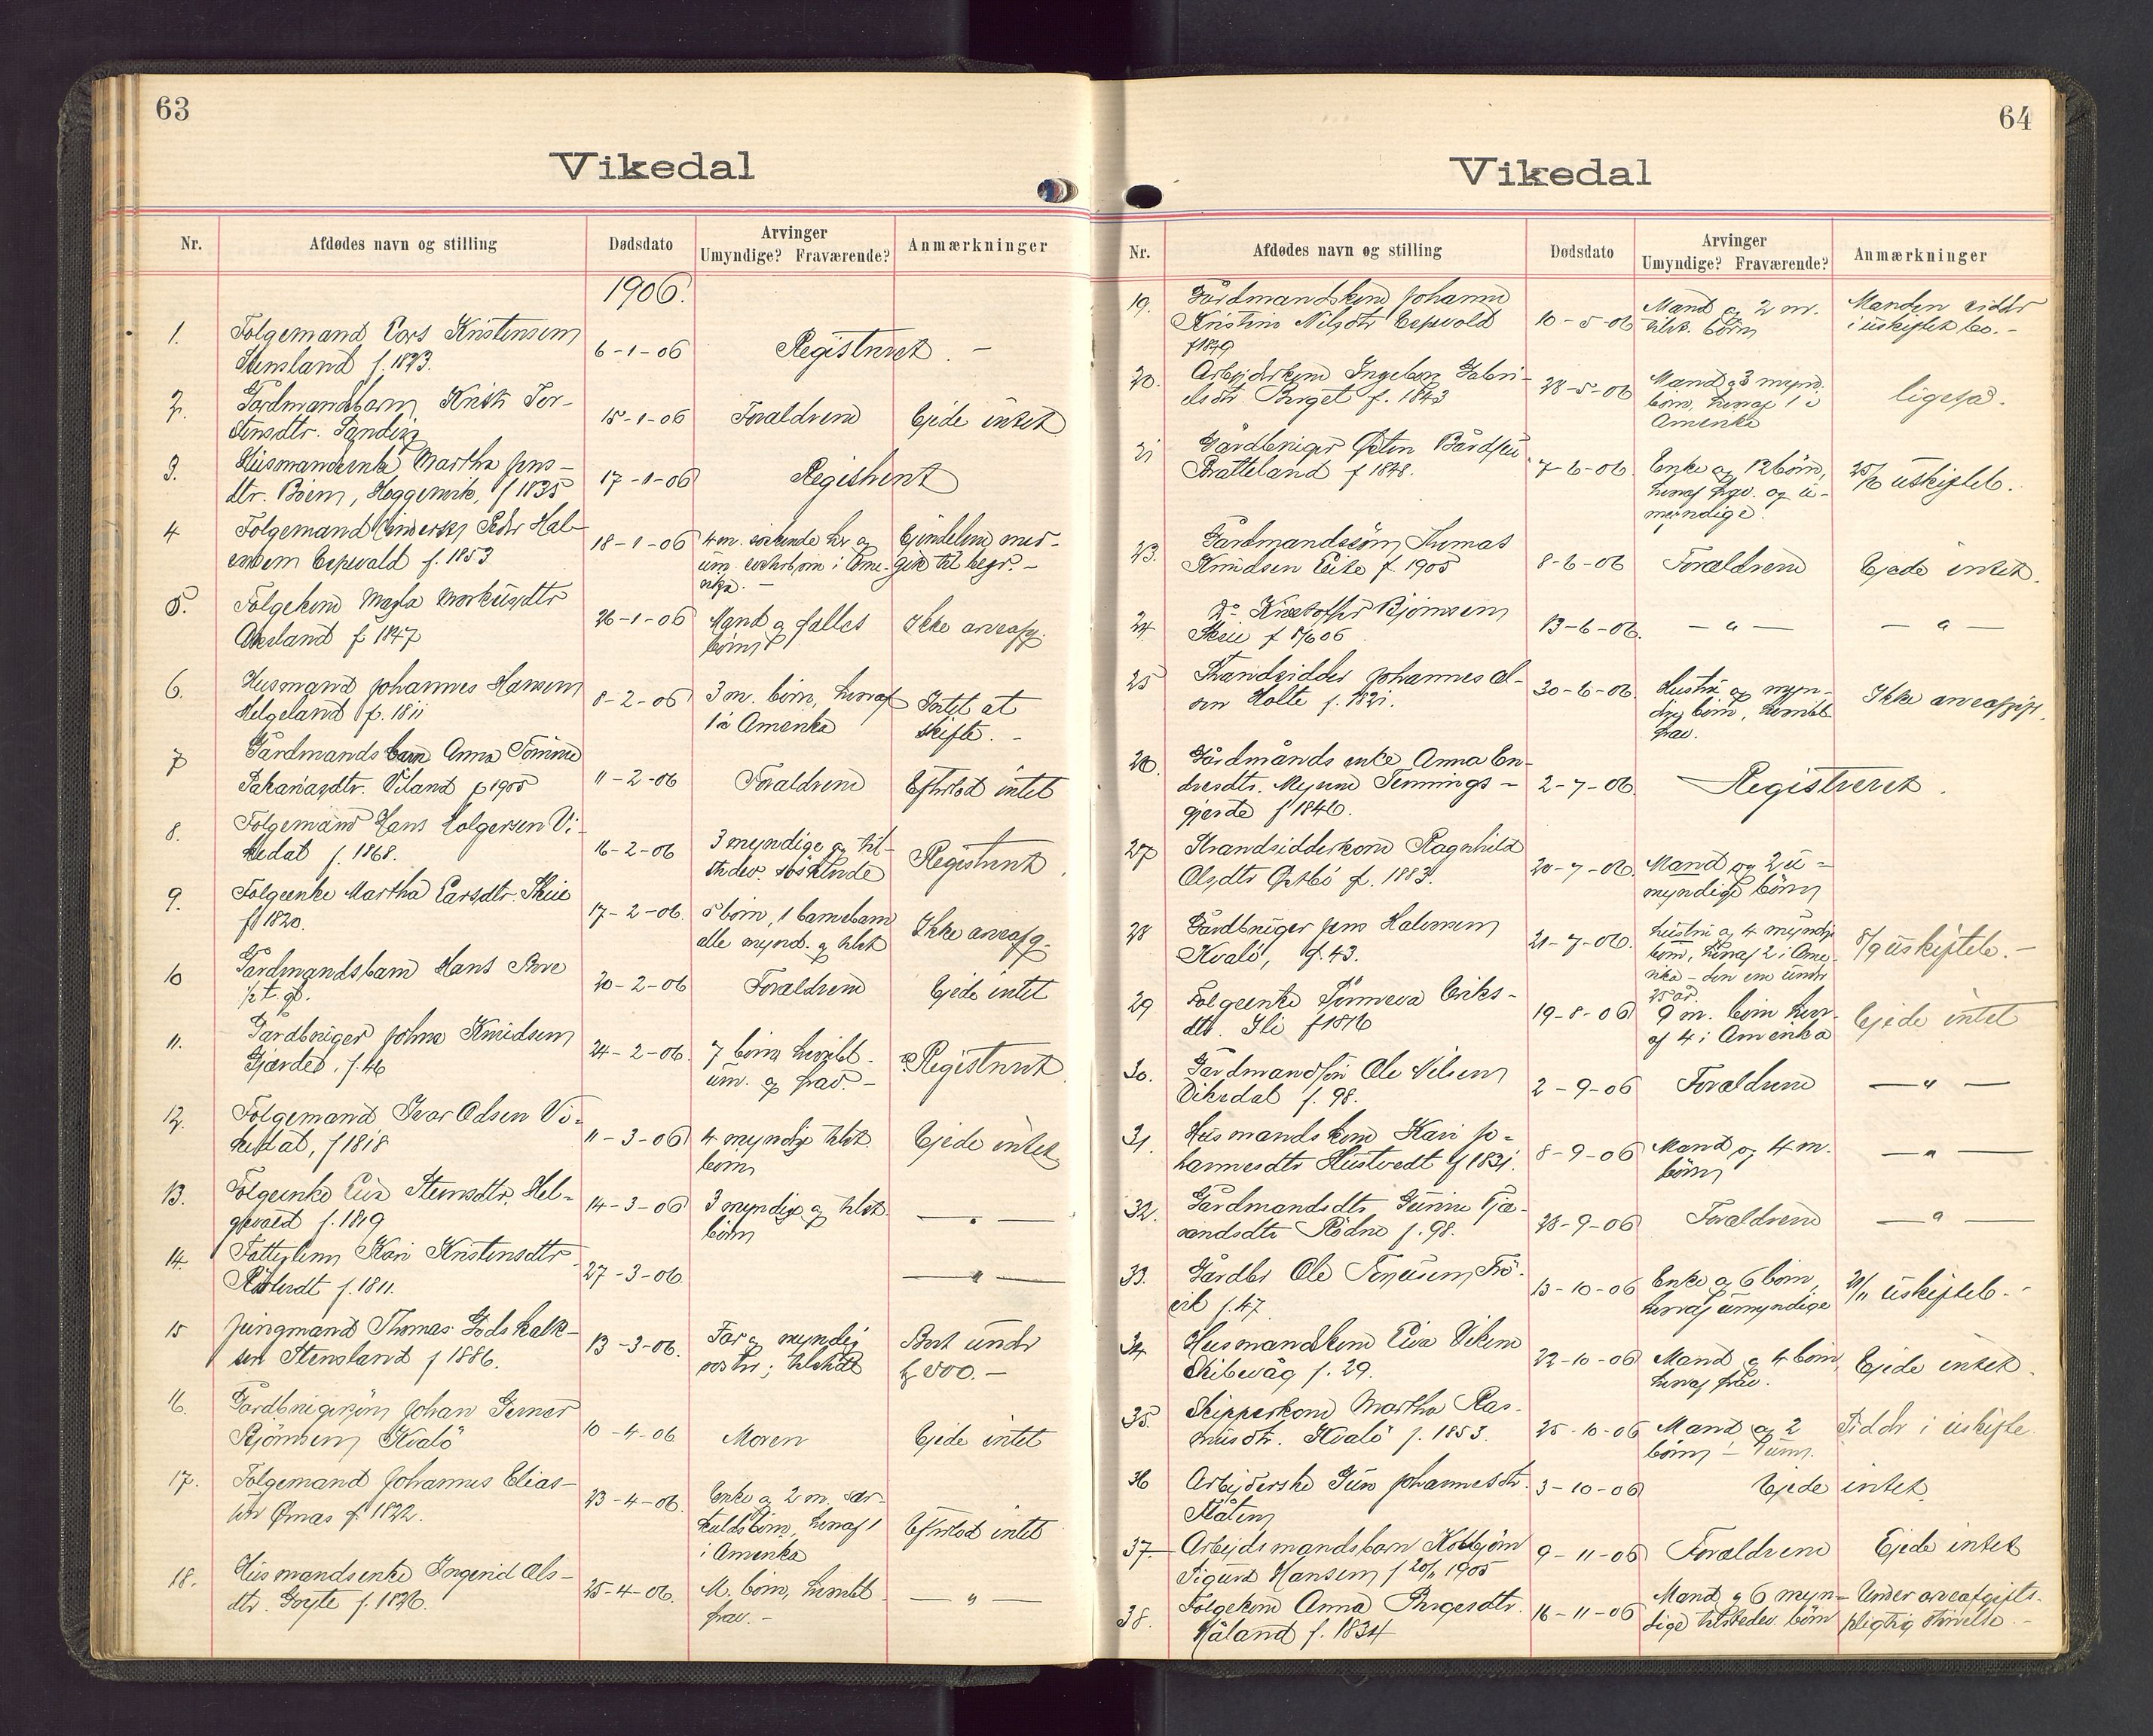 63
Vikedal
Nr.
Afdødes navn og stilling
Dødsdato
Arvinger
Umyndige? Fraværende?
Anmærkninger
1906.
1. Folgemand Lars Kristensen
Stensland f. 1823.
6-1-06
Registreret. -
2. Gårdmandsbarn
dtr. Sandeid
15-1-06
Forældrene
Ejede intet
3. Husmandsenke Martha Jens-
dtr. Heggervik, f 1835
17-1-06
Registreret
4 Folgemand Peder Hal-
Espevold f. 1853
18-1-06
4 m. søskende her og
um. i Ame-
rika. -
Ejendelene med-
gik til begr. -
5. Folgekone Magla Markusdtr
f 1847
26-1-06
Mand og fælles
børn
Ikke arveafg.
6. Husmand Johannes Hansen
Helgeland f. 1811
8-2-06
3 m. børn, heraf
1 i Amerika
Intet at
skifte. -
7 Gårdmandsbarn Anna Tomine
Sakariasdtr. Øiland f 1905
11-2-06
Forældrene
Efterlod intet
8. Folgemand Hans Holgersen Vi-
kedal f. 1868.
16-2-06
3 myndige og til-
stedev. søskende
Registreret.
9. Folgeenke Martha Larsdtr. Skeie
f 1820.
17-2-06.
5 børn, 1 barnebarn
alle mynd. og tilst
Ikke arveafg.
10 Gårdmandsbarn Hans
½ t. gl.
20-2-06
Forældrene
Ejede intet
11. Gårdbruger Johna Knudsen
Gjerdet, f. 46
24-2-06.
7 børn hvoribl.
um. og frav. -
Registreret.
12. Folgemand Ivar Odsen Vi-
kedal, f 1818
11-3-06
4 myndige tilst.
børn
Ejede intet
13. Folgeenke Eva Stensdtr. Hel-
gevold f. 1819
14-3-06
3 myndige og tilst.
børn
— " —
14. Fattiglem Kari Kristensdtr
f. 1811.
27-3-06.
— " —
15 Jungmand Thomas Godskalk-
sen Stensland f 1886.
13-3-06.
Far og myndig
søster; tilstede
Bort under
kr 500. -
16. Gårdbrugersøn Johan Gerner
Bjørnsen Kvalø
10-4-06
Moren
Ejede intet
17. Folgemand Johannes Elias-
sen Ørnas f. 1822.
23-4-06.
Enke og 2 m. sær-
kuldsbørn, heraf 1
i Amerika
Efterlod intet
18. Husmandsenke Ingerid Ols-
dtr. f. 1826.
25-4-06.
M. børn, hvoribl.
frav. -
— " —
64
Vikedal
Nr.
Afdødes navn og stilling
Dødsdato
Arvinger
Umyndige? Fraværende?
Anmærkninger
19. Gårdmandskone Johanne
Kristine Nilsdtr Espevold
f 1849
10-5-06
Mand og 2 m.
tilst. børn
Manden sidder
i uskiftet bo. -
20. Arbejderskone Ingebor Gabri-
elsdtr. Berget f. 1843
28-5-06
Mand og 3 mynd.
børn, heraf 1 i
Amerika
ligeså.
21 Gårdbruger Østen Bårdsen
Bratteland f 1848.
7-6-06.
Enke og 12 børn,
heraf frav. og u-
myndige.
uskifteb.
23. Gårdmandssøn Thomas
Knudsen Leite f 1905
8-6-06
Forældrene
Ejede intet.
24 Do Kristoffer Bjørnsen
Skeie f
13-6-06.
— " —
— " —
25 Strandsidder Johannes Ol-
sen Holte f. 1821.
30-6-06.
Hustru og myn-
dige børn, hvoribl
frav.
Ikke arveafgift.
26. Gårdmands enke Anna En-
dresdtr. Tennings-
gjerde f 1846.
2-7-06.
Registreret.
27 Strandsidderkone Ragnhild
Olsdtr Østbø f. 1883.
20-7-06.
Mand og 2 u-
myndige børn
28 Gårdbruger Jens Halvorsen
Kvalø, f. 43.
21-7-06.
hustru og 4 myndige
børn, heraf 2 i Ame-
rika - den ene under
25 år.
8/9 uskifteb. -
29 Folgeenke Tønneva Eriks-
dtr. Ili f 1816
19-8-06
9 m. børn her-
af 4 i Amerika
Ejede intet
30. Gårdmandsøn Ole Nilsen
Vikedal f. 98.
2-9-06
Forældrene
— " —
31. Husmandskone Kari Jo-
hannesdtr Hustvedt f 1831.
8-9-06
Mand og 4 m.
børn
— " —
32. Gårdmandsdtr Gurine Tja-
randsdtr Rødne f. 98.
28-9-06
Forældrene
— " —
33. Gårdbr Ole
f. 47
13-10-06
Enke og 6 børn
heraf umyndige
uskifteb. -
34 Husmandskone Eva
Skibevåg f. 29.
22-10-06
Mand og 4 børn,
heraf frav.
Ejede intet.
35. Skipperkone Martha Ras-
musdtr. Kvalø f. 1853.
25-10-06
Mand og 2
børn - 1 um.
Sidder i uskifte.
36 Arbejderske Guro Johannesdtr.
3-10-06
Ejede intet
37- Arbejdsmandsbarn Kolbjørn
Sigurd Hansen f 20/11 1905
9-11-06
Forældrene
Ejede intet
38. Folgekone Anna Børgesdtr.
Håland f. 1834
16-11-06
Mand og 6 myn-
dige tilstedev. børn
Under arveafgifts-
pligtig størrelse. -